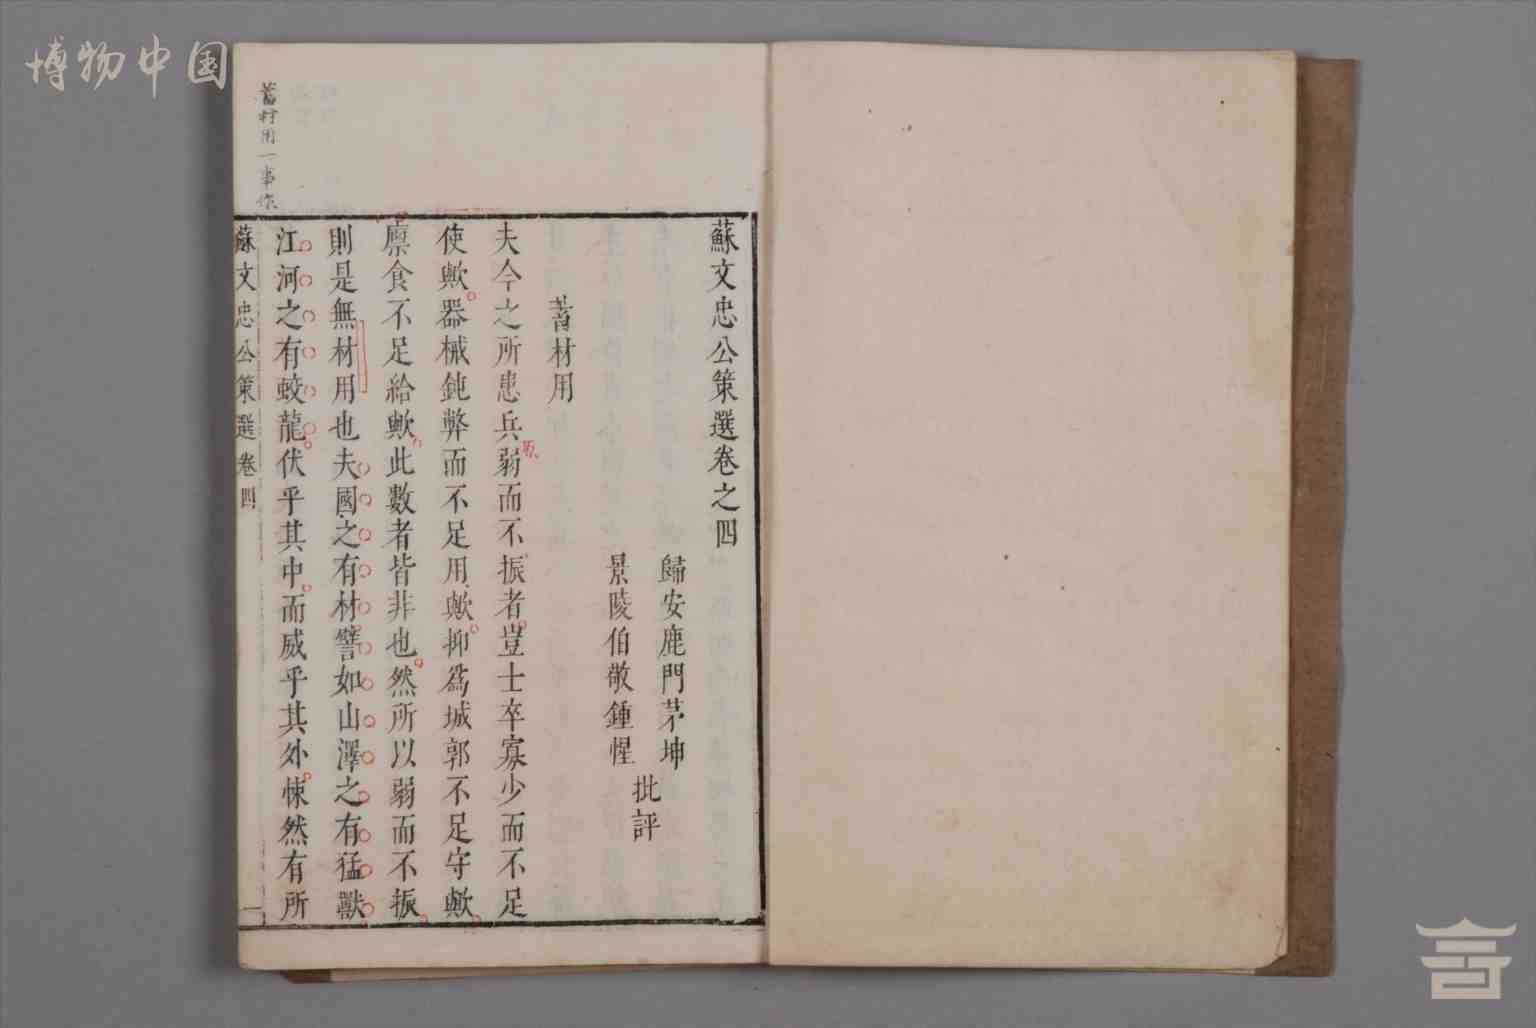 博物中国
蘇文忠公策選卷之四
歸安鹿門茅坤
景陵伯敬鍾惺
批評
蓄材用
夫今之所患兵弱而不振者豈士卒寡少而不足
使歟器械鈍弊而不足用歟抑爲城郭不足守歟
廩食不足給歟此數者皆非也然所以弱而不振
則是無材用也夫國之有材譬如山澤之有猛獸
江河之有蛟龍伏乎其中而威乎其外悚然有所
蘇文忠公策選卷四
一
蓄材用一事作